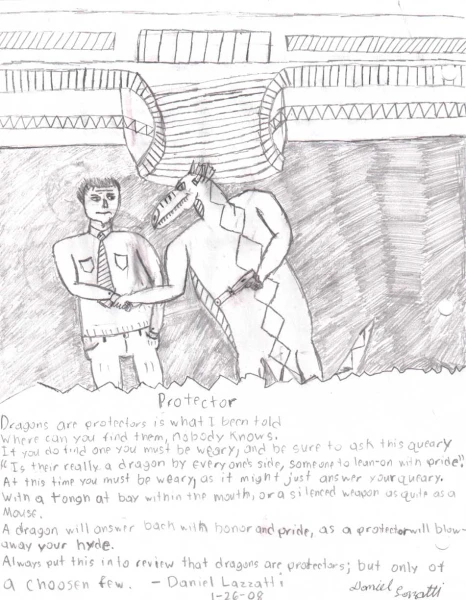 Protector
Dragons are protectors is what I been told
Where can you find them, nobody knows.
If you do told one you must be weary, and be sure to ask this queary
"Is their really a dragon by everyone's side, someone to lean-on with pride"
At this time you must be weary, as it might just answer your queary.
With a tongh at bay within the mouth, or a silenced weapon as quite as a
Mouse.
A dragon will answer back with honor and pride, as a protector will blow-
away your hyde.
Always put this into review that dragons are protectors; but only of
a choosen few. - Daniel Lazzatti
1-26-08
Daniel Lazzatti